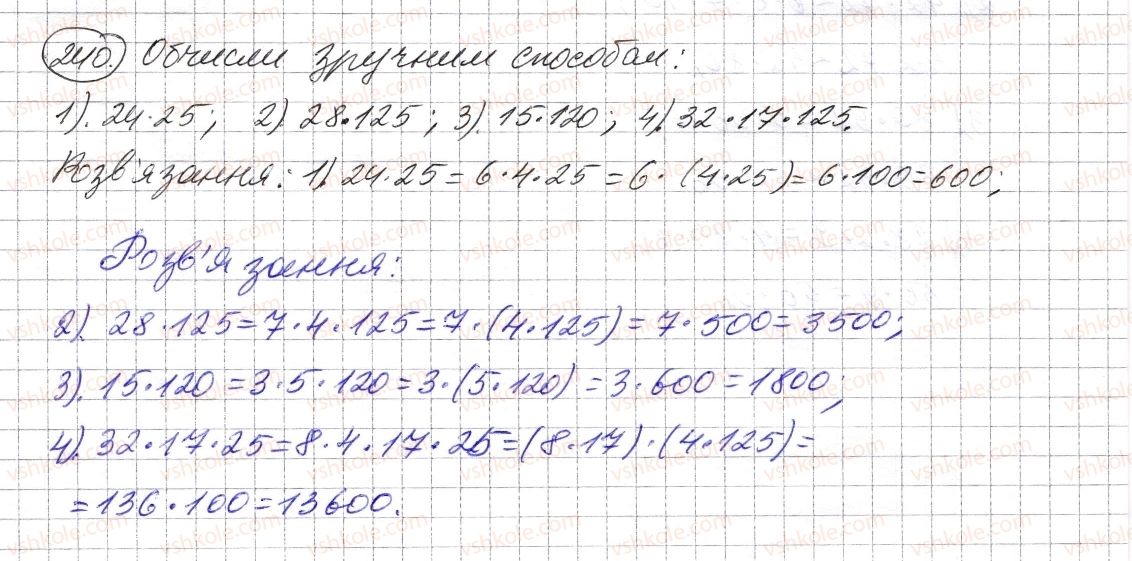 240. Обчисли зручним способом:
1). 24·25; 2) 28·125; 3). 15·120; 4). 32·17·125.
Розв'язання: 1). 24·25=6·4·25=6·(4·25)=6·100=600;
Розв'язання:
2). 28·125=7·4·125=7·(4·125)=7·500=3500;
3). 15·120=3·5·120=3·(5·120)=3·600=1800;
4). 32·17·25=8·4·17·25=(8·17)·(4·125)=
=136·100=13600.